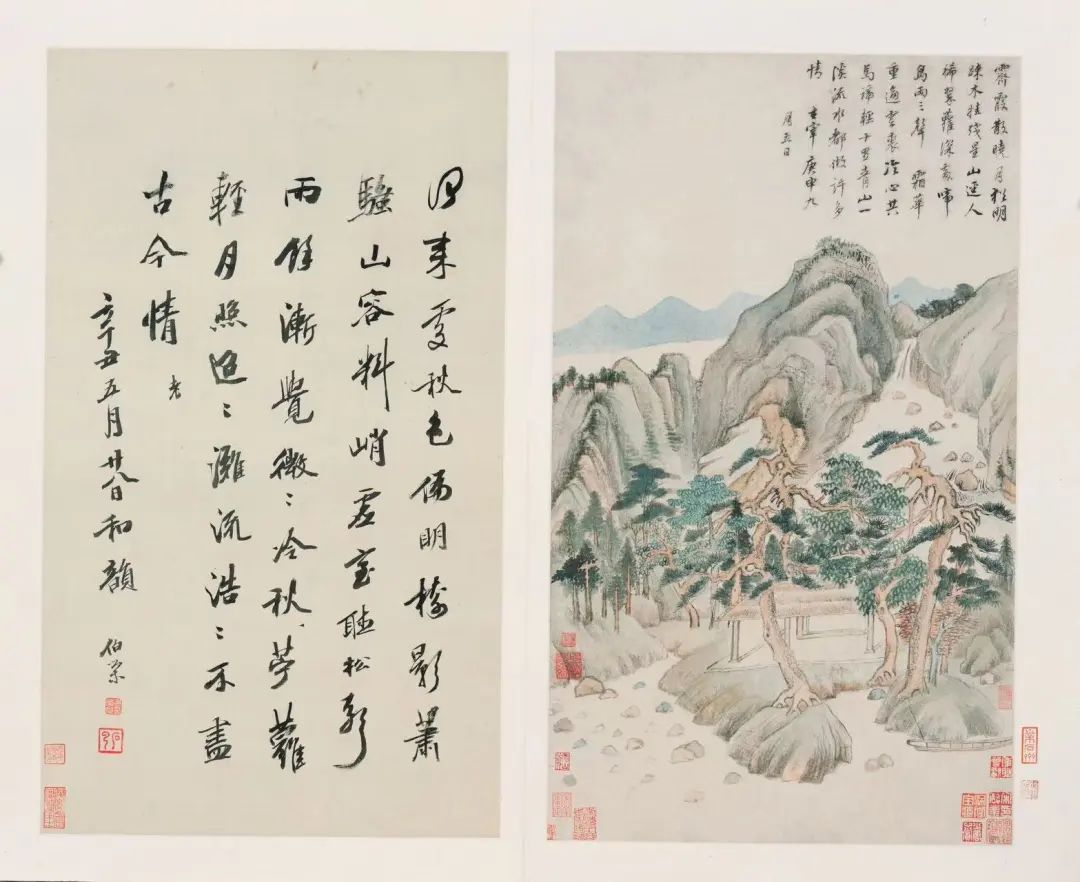 霽霞散曉月猶明
踈木挂殘星山迳人
稀翠蘿深處啼
鳥兩三聲 霜華
重迫雲裘冷心共
馬蹄輕十里青山一
溪流水都做許多
情 玄宰庚申九
月五日
來秋色偏明樹影蕭
騷山容料峭虛室聽松聲
雨餘漸覺微〻冷秋夢蘿
輕月照迢〻灘流浩〻不盡
古今情
辛丑五月廿八日和韻